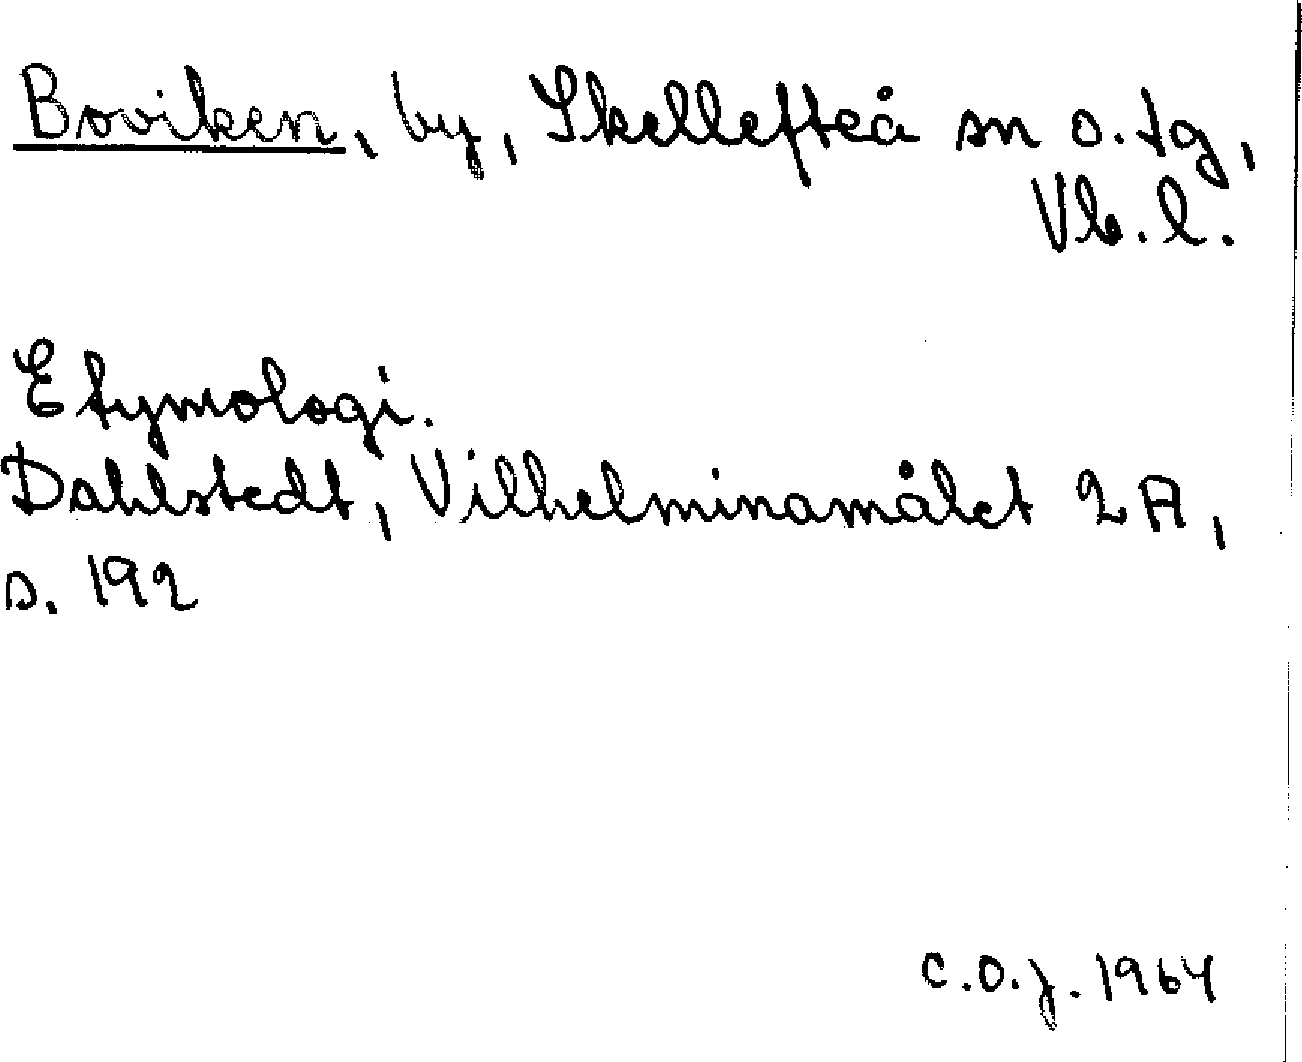 Boviken, by, Skellefteå sn o. tg,
Vb. l.
Etymologi.
Dahlstedt, Vilhelminamålet 2A,
s. 192
C.O.J. 1964